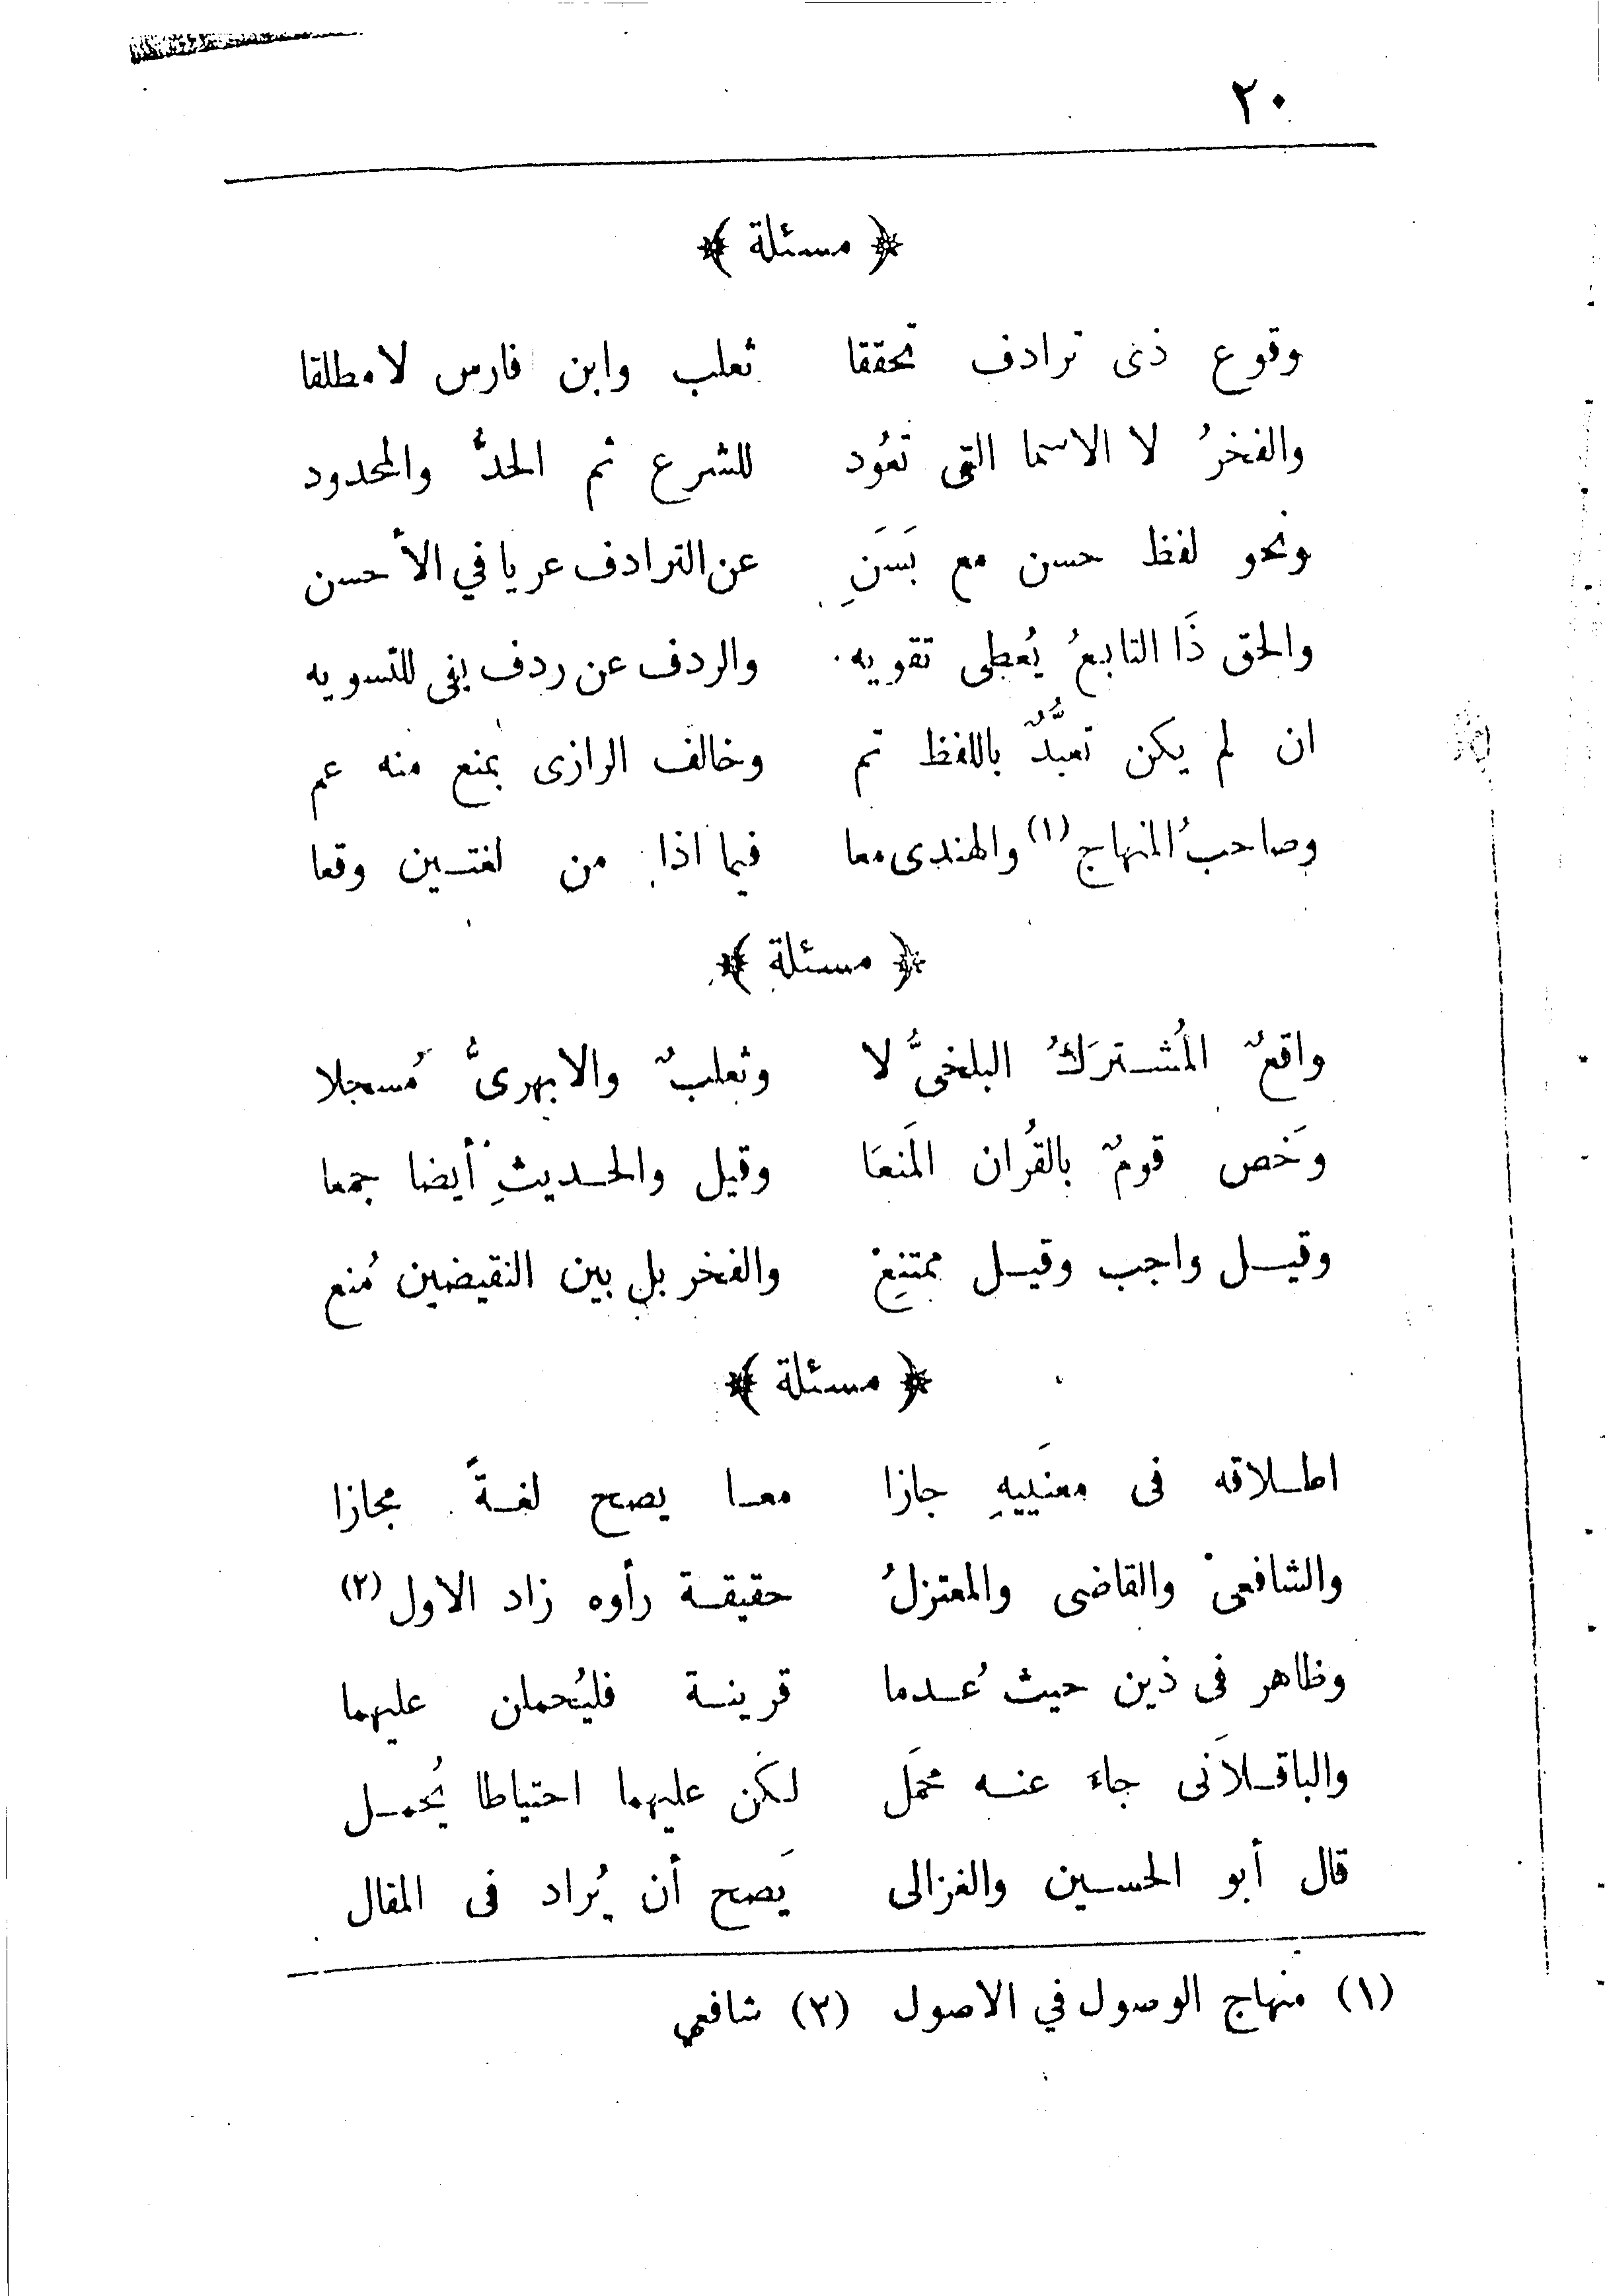 ٢٠
﴿ مسئلة ﴾
وقوع ذى ترادف تحققا ثعلب وابن فارس لا مطلقا
والفخرُ لا الاسما التى تعُود للشرع ثم الحدُّ والمحدود
ونحو لفظ حسن مع بَسَنِ عن الترادف عريا في الأحسن
والحق ذَا التابعُ يُعطى تقويه والردف عن ردف يفى للتسويه
ان لم يكن تعبُّدٌ باللفظ تم وخالف الرازى بمنع منه عم
وصاحبُ المنهاج (١) والهندى معا فيما اذا من لغتـين وقعا
﴿ مسئلة ﴾
واقعٌ المُشـترَكُ البلخىُّ لا وثعلبٌ والابهرىُّ مُسجلا
وَخص قومٌ بالقُران المَنعَا وقيل والحـديثِ أيضا جمعا
وقيـل واجب وقيـل ممتنِعْ والفخر بل بين النقيضين مُنع
﴿ مسئلة ﴾
اطـلاقه فى معنَييهِ جازا معـا يصح لغـةً مجازا
والشافعىْ والقاضى والمعتزلُ حقيقـة رأوه زاد الاول (٢)
وظاهر فى ذين حيث عُـدما قرينـة فليُحملن عليهما
والباقـلاَنى جاءَ عنـه مجمَل لكَن عليهما احتياطا يُحمـل
قال أبو الحسـين والغزالى يَصح أن يُراد فى المقال
(١) منهاج الوصول في الاصول (٢) شافعي